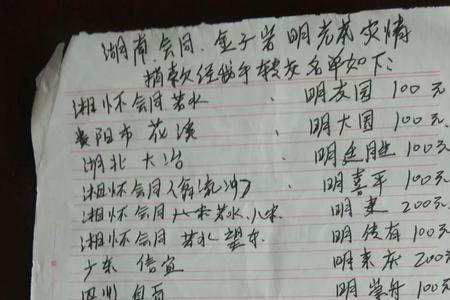 湖南会同.金子岩明光成灾情
捐款经我手转交名单如下:
湘怀会同若水 . 明友国 100元
襄阳市 花溪 明大国 100元
湖北 大冶 明廷胜 100元
湘怀会同 . 明喜平 100元
湘怀会同 若水.八米 明来 200元
湘怀会同 若水 望东 明传有 100元
广东 信宜 明来庆 200元
四川 自贡 明崇舟 100元